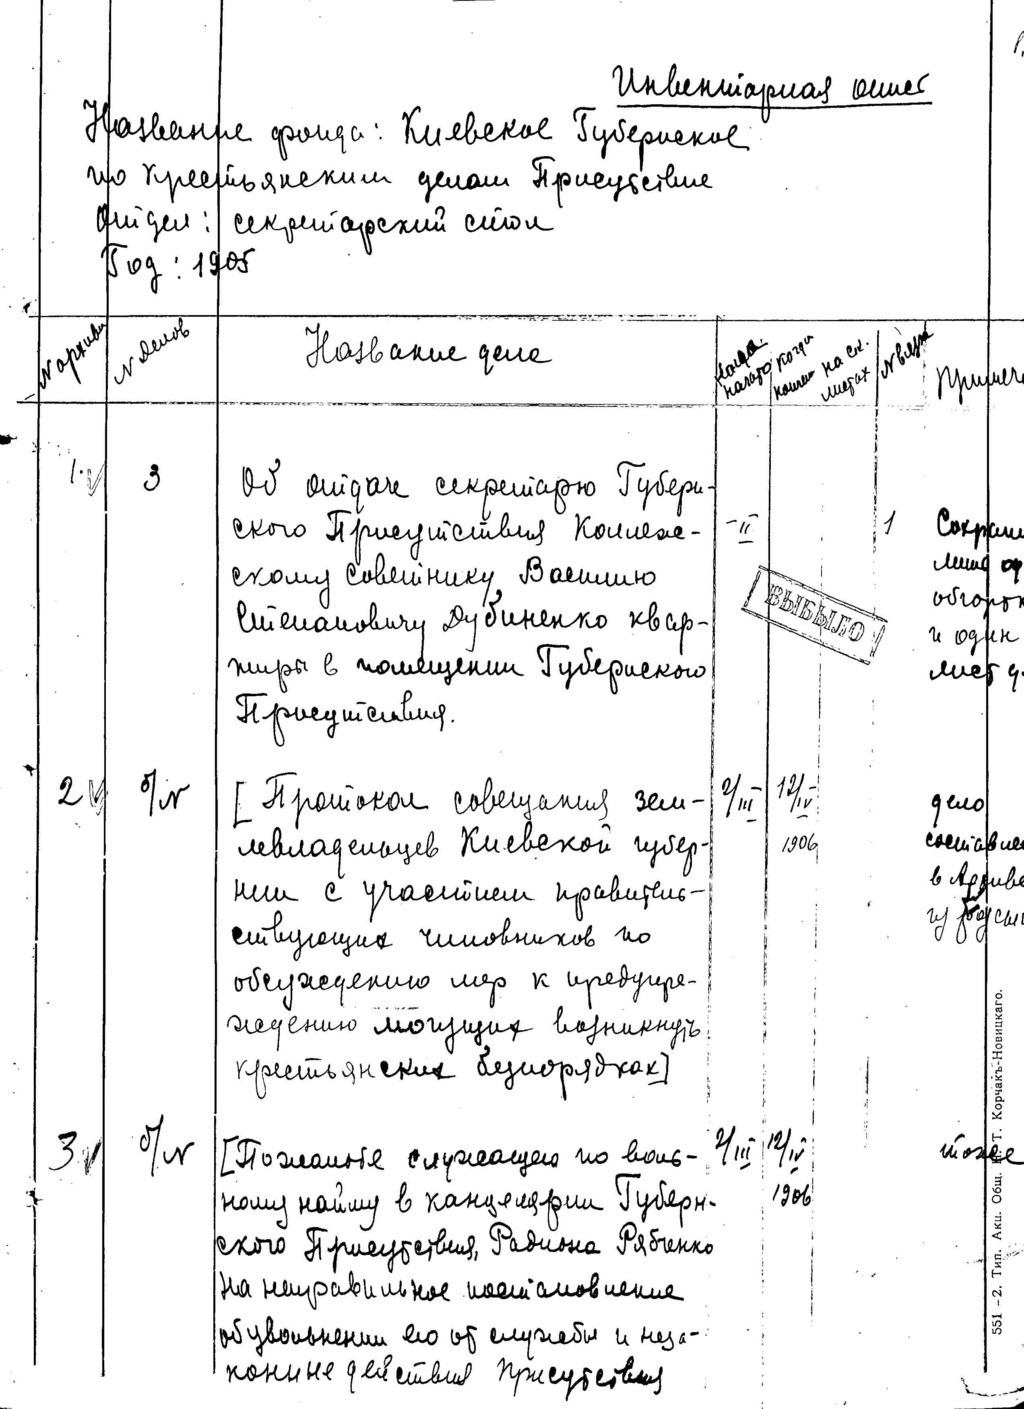 Инвентарная опис
Название фонда: Киевское Губернское
по крестьянским делам Присутствие
Отдел: секретарский стол
Год: 1905
N архивн
N делов
Название дела
Когда начато
Когда кончен
на ск. листах
N вязк
Примеча
1.
3
Об отдаче секретарю Губерн-
ского Присутствия Коллеж-
скому советнику Василию
Степановичу Дубиненко квар-
тиры в помещении Губернского
Присутствия.
II
1
Сохрани
лишь об
обгорок
и один
лист д
ВЫБЫЛО
2
б/N
[Протокол совещания зем-
левладельцев Киевской губер-
нии с участием правитель-
ствующих чиновников по
обсуждению мер к предупре-
ждению могущих возникнуть
крестьянских безпорядках]
2/III
12/IV
1906
дело
составлен
в Архиве
из россып
3
б/N
[По жалобе служащего по воль-
ному найму в канцелярии Губерн-
ского Присутствия, Радиона Рябченко
на неправильное постановление
об увольнении его от службы и неза-
конные действия Присутствия
2/III
12/IV
1906
тоже
551 —2. Тип. Акц. Общ. Н. Т. Корчакъ-Новицкаго.